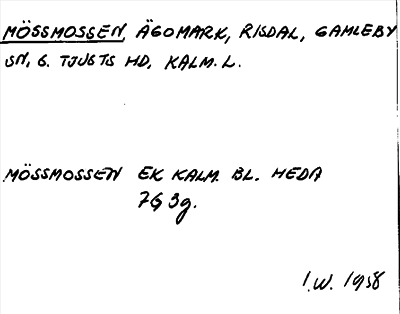 MÖSSMOSSEN, ÄGOMARK, RISDAL, GAMLEBY
SN, S. TJUSTS HD, KALM. L.
MÖSSMOSSEN EK KALM. BL. HEDA
7G 3g.
I.W. 1958